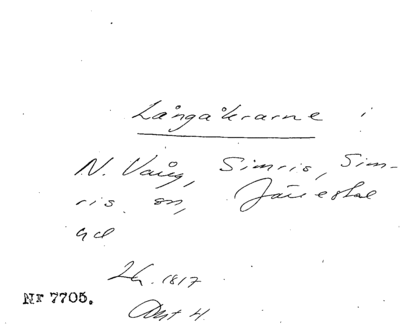 Långåkrarne i
N. Vång, Simris, Sim-
ris sn, Järrestad
hd
Lh. 1817
Akt 4
Nr 7705.